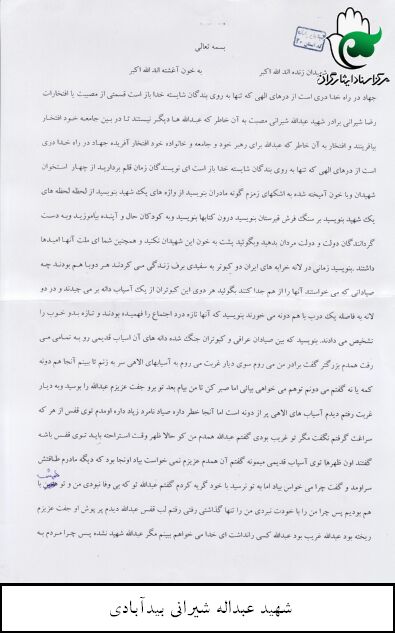 مرکز اسناد ایثارگران
بسمه تعالی
شهیدان زنده اند الله اکبر به خون آغشته اند الله اکبر
جهاد در راه خدا دری است از درهای الهی که تنها به روی بندگان شایسته خدا باز است قسمتی از مصیبت یا افتخارات
رضا شیرانی برادر شهید عبدالله شیرانی مصیبت به آن خاطر که عبدالله ها دیگر نیستند تا در بین جامعه خود افتخار
بیافرینند و افتخار به آن خاطر که عبدالله برای رهبر خود و جامعه و خانواده خود افتخار آفریده جهاد در راه خدا دری
است از درهای الهی که تنها به روی بندگان شایسته خدا باز است ای نویسندگان زمان قلم بردارید از چهار استخوان
شهیدان وبا خون آمیخته شده به اشکهای زمزم گونه مادران بنویسید از واژه های یک شهید بنویسید از لحظه لحظه های
یک شهید بنویسید بر سنگ فرش قبرستان بنویسید درون کتابها بنویسید و به کودکان حال و آینده بیاموزید وبه دست
گردانندگان دولت و دولت مردان بدهید وبگوئید پشت به خون این شهیدان نکنید و همچنین شما ای ملت آنها امیدها
داشتند .بنویسید زمانی در لانه خرابه های ایران دو کبوتر به سفیدی برف زندگی می کردند هر دو با هم بودند چه
صیادانی که می خواستند آنها را از هم جدا کنند بگوئید هر دوی این کبوتران از یک آسیاب دانه بر می چیدند و در دو
لانه به فاصله یک درب با هم دونه می خورند بنویسید که آنها تازه درد اجتماع را فهمیده بودند و تازه بدو خوب را
تشخیص می دادند. بنویسید که بین صیادان عراقی و کبوتران جنگ شده دانه های آن اسیاب قدیمی رو به تمامی می
رفت همدم بزرگتر گفت برادر من می روم سوی دیار غربت می روم به آسیابهای الاهی سر به زنم تا بینم آنجا هم دونه
کمه یا نه گفتم می دونم توهم می خواهی بیائی اما صبر کن تا من بیام بعد تو برو جفت عزیزم عبدالله را بوسید وبه دیار
غربت رفتم دیدم آسیاب های الاهی پر از دونه است اما آنجا خطر داره صیاد نامرد زیاد داره اومدم توی قفس از هر که
سراغت گرفتم نگفت مگر تو غریب بودی گفتم عبدالله همدم من کو حالا ظهر وقت استراحته باید توی قفس باشه
گفتند اون ظهرها توی آسیاب قدیمی میمونه گفتم آن همدم عزیزم نمی خواست بیاد اونجا بود که دیگه مادرم طاقتش
سراومد و گفت چرا می خواس بیاد اما به تو نرسید با خود گریه کردم گفتم عبدالله تو که بی وفا نبودی من و تو همیشه با
هم بودیم پس چرا من را با خودت نبردی من را تنها گذاشتی رفتی رفتم لب قفس عبدالله دیدم پر پوش او جفت عزیزم
ریخته بود عبدالله غریب بود عبدالله کسی رانداشت ای خدا می خواهم ببینم مگر عبدالله شهید نشده پس چرا مردم به
شهید عبداله شیرانی بیدآبادی